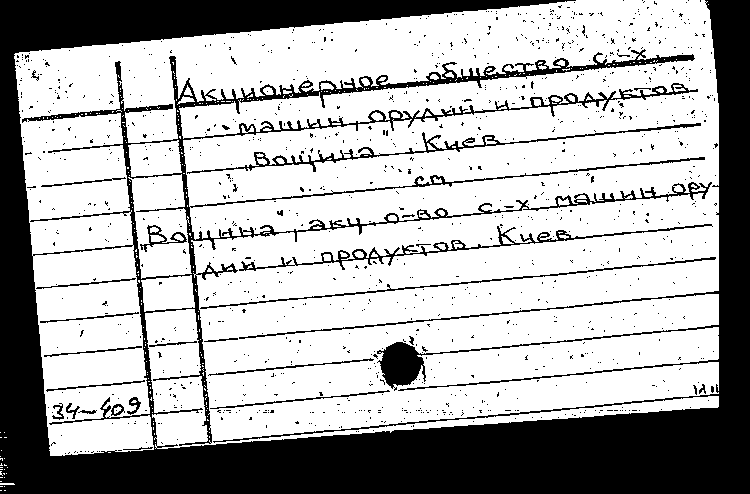 Акционерное общество с.-х
машин, орудий и продуктов
„Вощина", Киев
см
„Вощина", акц. о-во с.-х. машин, ору-
дий и продуктов. Киев
34-409